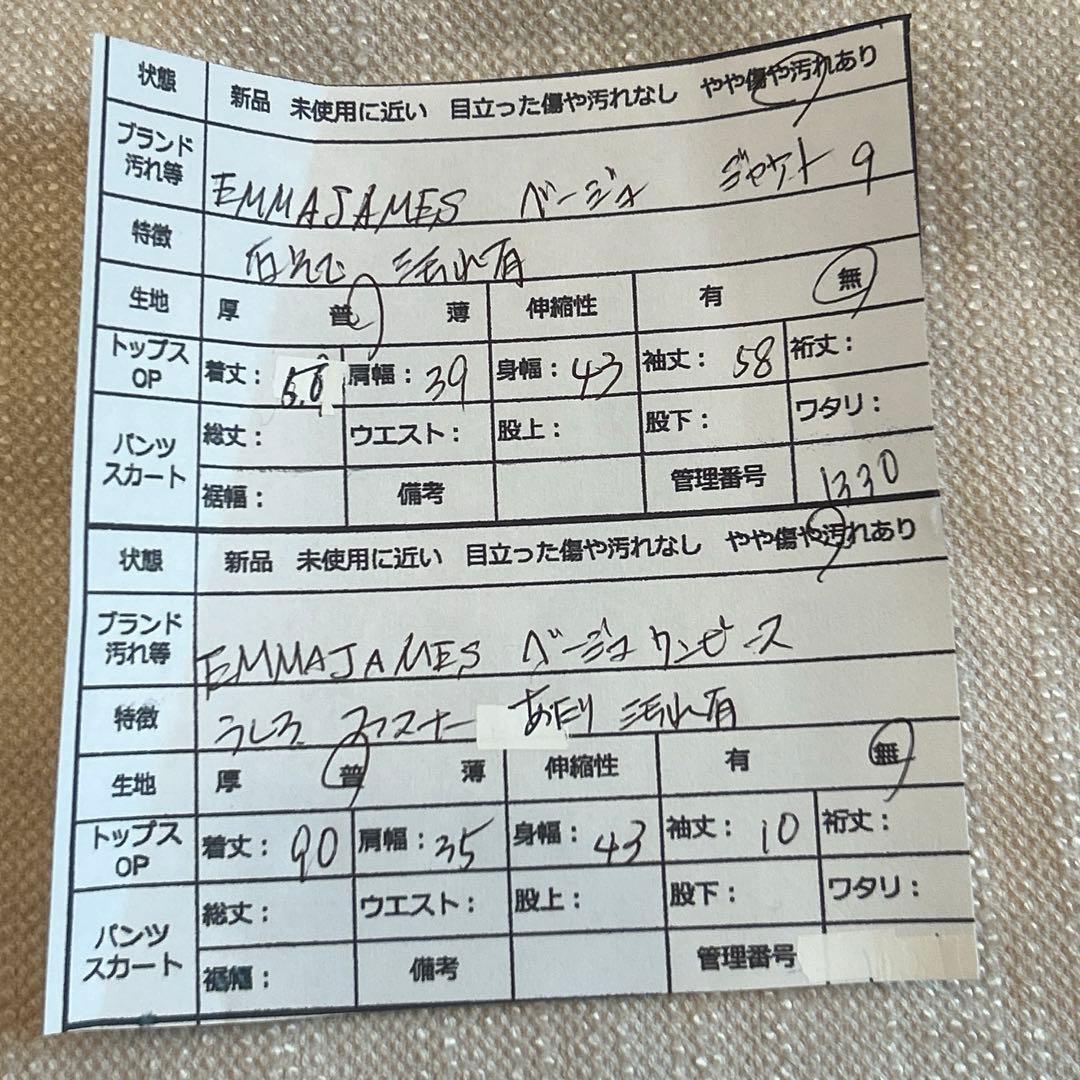 状態 新品 未使用に近い 目立った傷や汚れなし やや傷や汚れあり
ブランド 汚れ等 EMMAJAMES ベージュ ジャケット 9
特徴 右そで 汚れ有
生地 厚 普 薄 伸縮性 有 無
トップス OP 着丈: 肩幅:39 身幅:43 袖丈:58 裄丈:
パンツ スカート 総丈: ウエスト: 股上: 股下: ワタリ:
裾幅: 備考 管理番号 1330
状態 新品 未使用に近い 目立った傷や汚れなし やや傷や汚れあり
ブランド 汚れ等 EMMAJAMES ベージュ ワンピース
特徴 うしろ ファスナー あたり 汚れ有
生地 厚 普 薄 伸縮性 有 無
トップス OP 着丈:90 肩幅:35 身幅:43 袖丈:10 裄丈:
パンツ スカート 総丈: ウエスト: 股上: 股下: ワタリ:
裾幅: 備考 管理番号